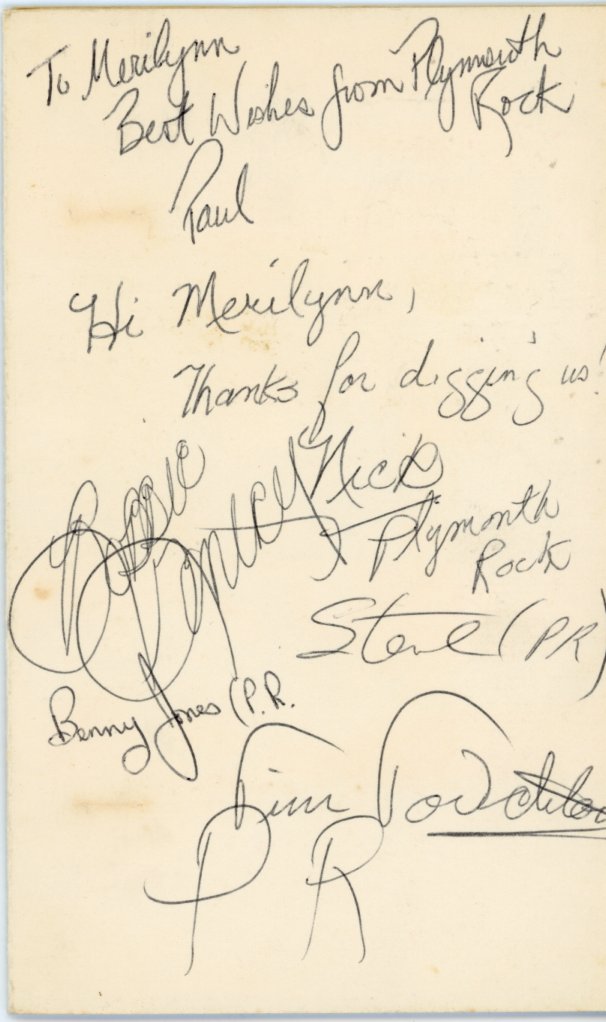 To Merilynn
Best Wishes from Plymouth
Rock
Paul
Hi Merilynn,
Thanks for digging us!
Nick
Plymouth
Rock
Steve (PR)
Benny Jones (P.R.
Tim
PR